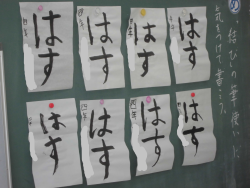 結びの筆使いに
気をつけて書こう。
はす
はす
はす
はす
はす
はす
はす
はす